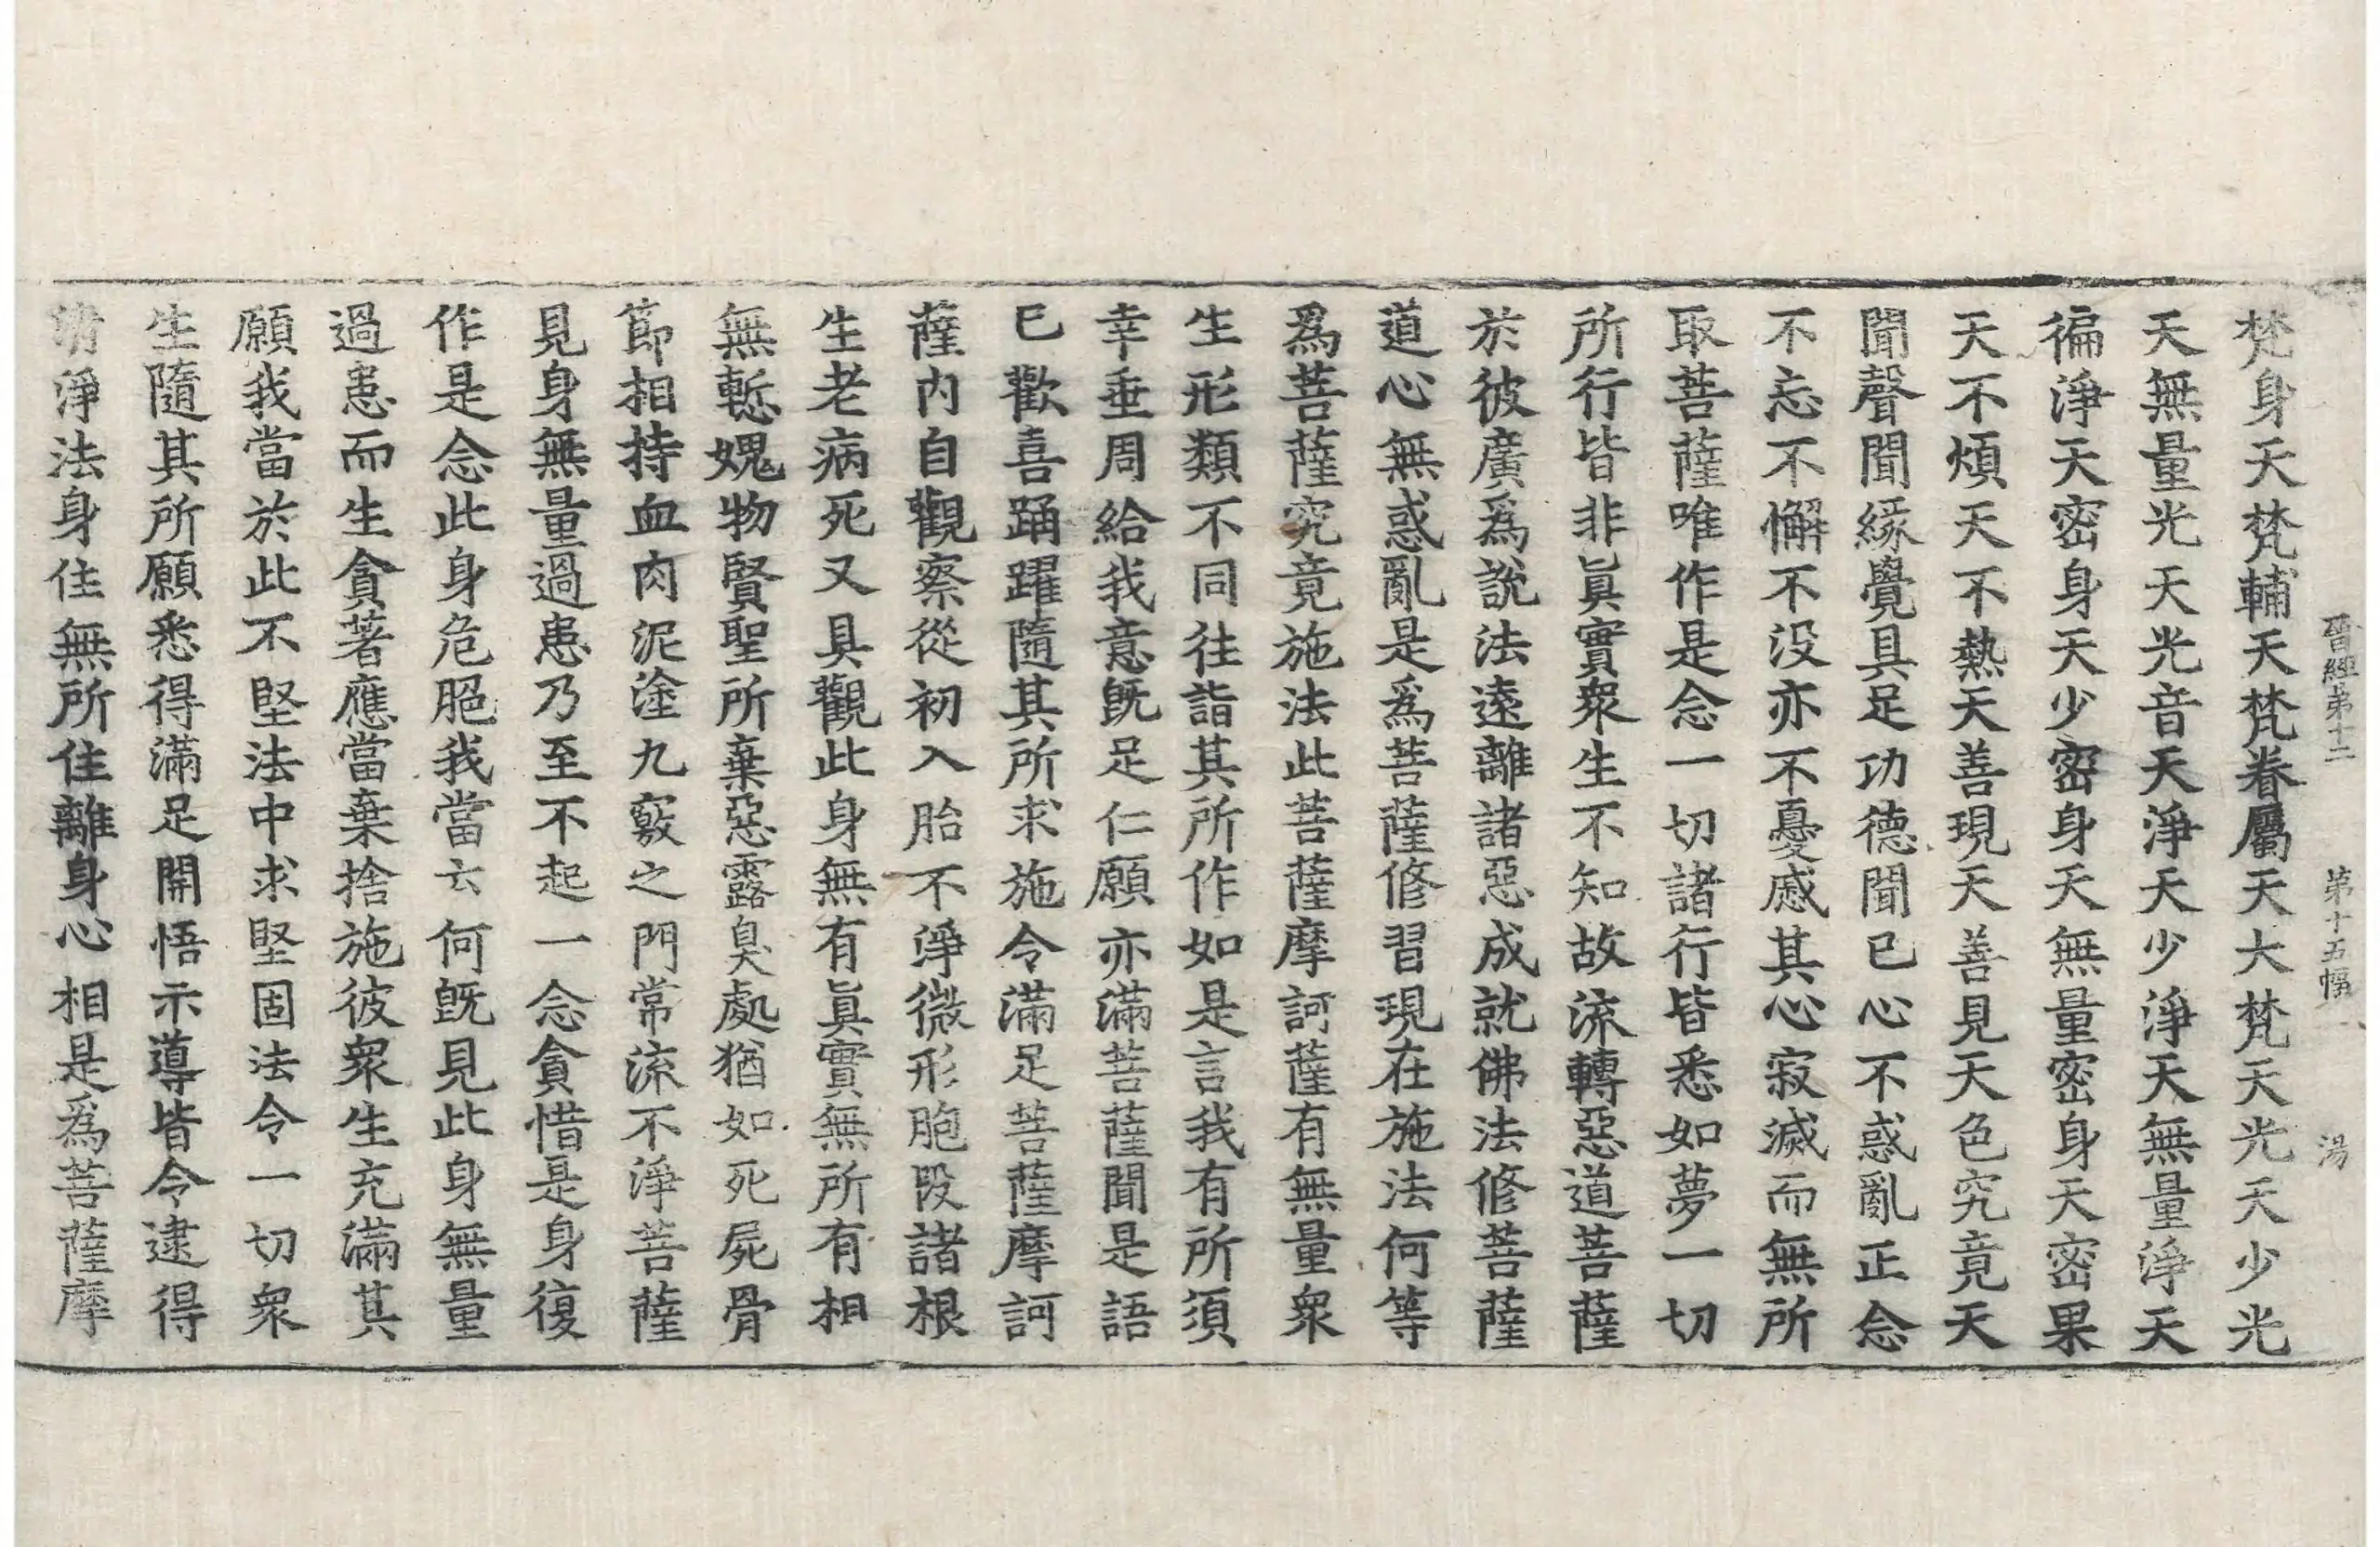 晉經第十二 第十五幅 湯
梵身天梵輔天梵眷屬天大梵天光天少光
天無量光天光音天淨天少淨天無量淨天
徧淨天密身天少密身天無量密身天密果
天不煩天不熱天善現天善見天色究竟天
聞聲聞緣覺具足功德聞已心不惑亂正念
不忘不懈不没亦不憂慼其心寂滅而無所
取菩薩唯作是念一切諸行皆悉如夢一切
所行皆非眞實衆生不知故流轉惡道菩薩
於彼廣爲說法遠離諸惡成就佛法修菩薩
道心無惑亂是爲菩薩修習現在施法何等
爲菩薩究竟施法此菩薩摩訶薩有無量衆
生形類不同往詣其所作如是言我有所須
幸垂周給我意旣足仁願亦滿菩薩聞是語
已歡喜踊躍隨其所求施令滿足菩薩摩訶
薩内自觀察從初入胎不淨微形胞段諸根
生老病死又具觀此身無有眞實無所有相
無慙媿物賢聖所棄惡露臭處猶如死屍骨
節相持血肉泥塗九竅之門常流不淨菩薩
見身無量過患乃至不起一念貪惜是身復
作是念此身危脃我當云何旣見此身無量
過患而生貪著應當棄捨施彼衆生充滿其
願我當於此不堅法中求堅固法令一切衆
生隨其所願悉得滿足開悟示導皆令逮得
清淨法身住無所住離身心相是爲菩薩摩